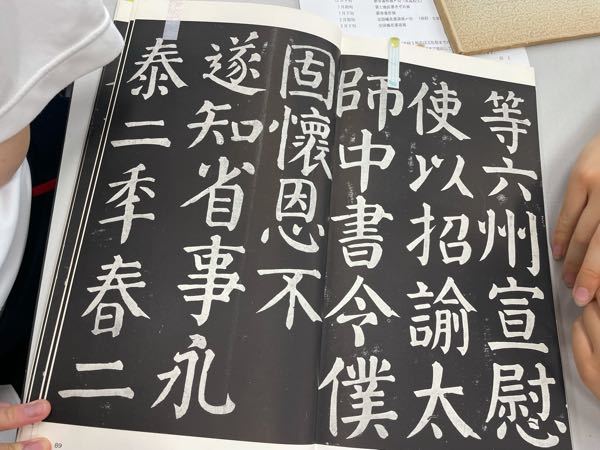 等六州宣慰
使以招諭太
師中書令僕
固懷恩不
遂知省事永
泰二秊春二
89